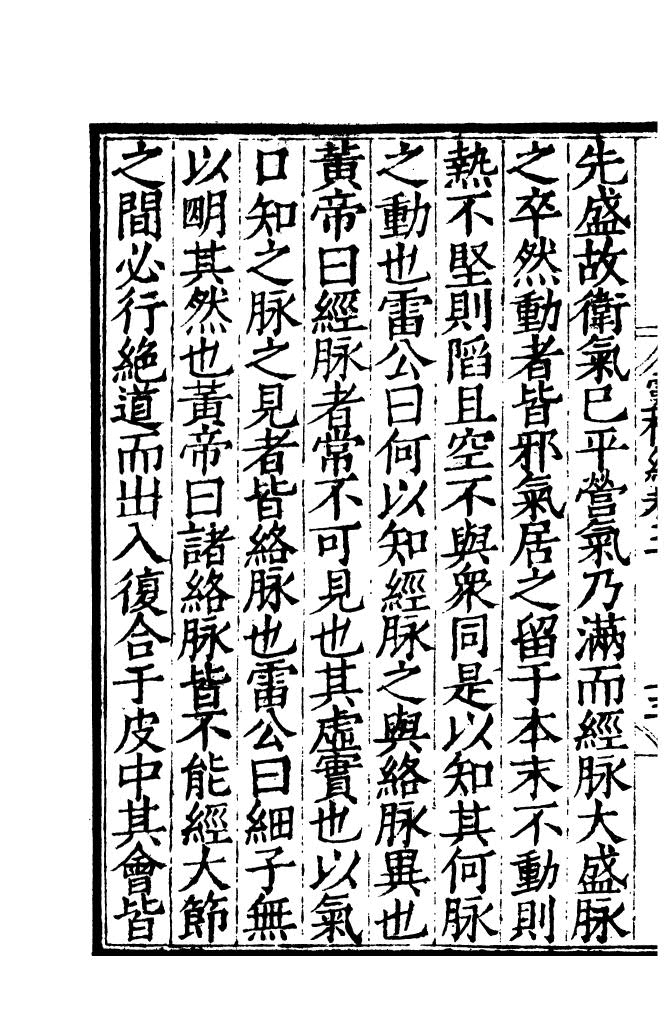 先盛故衛氣已平營氣乃滿而經脉大盛脉
之卒然動者皆邪氣居之留于本末不動則
熱不堅則䧟且空不與衆同是以知其何脉
之動也雷公曰何以知經脉之與絡脉異也
黃帝曰經脉者常不可見也其虛實也以氣
口知之脉之見者皆絡脉也雷公曰細子無
以明其然也黃帝曰諸絡脉皆不能經大節
之間必行絶道而出入復合于皮中其會皆